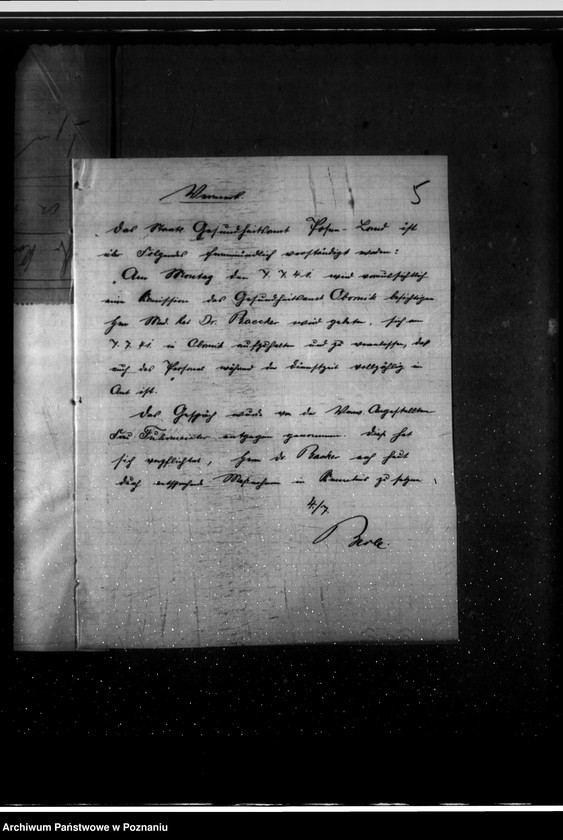 Vermerk
5
Das Staatl. Gesundheitsamt Posen-Land ist
über Folgendes fernmündlich verständigt worden:
"Am Montag den 7.7.41. wird voraussichtlich
eine Komission das Gesundheitsamt Obornik besichtigen
Herr Med. Rat Dr. Baecker wird gebeten, sich am
7.7.41. in Obornik aufzuhalten und zu veranlassen, daß
auch das Personal während der Dienstzeit vollzählig im
Amt ist.
Das Gespräch wurde von der Verw. Angestellten
Frau entgegen genommen. Diese hat
sich verpflichtet, Herrn Dr. Baecker noch heut
durch entsprechende in Kenntnis zu setzen.
4./7.
Archiwum Państwowe w Poznaniu